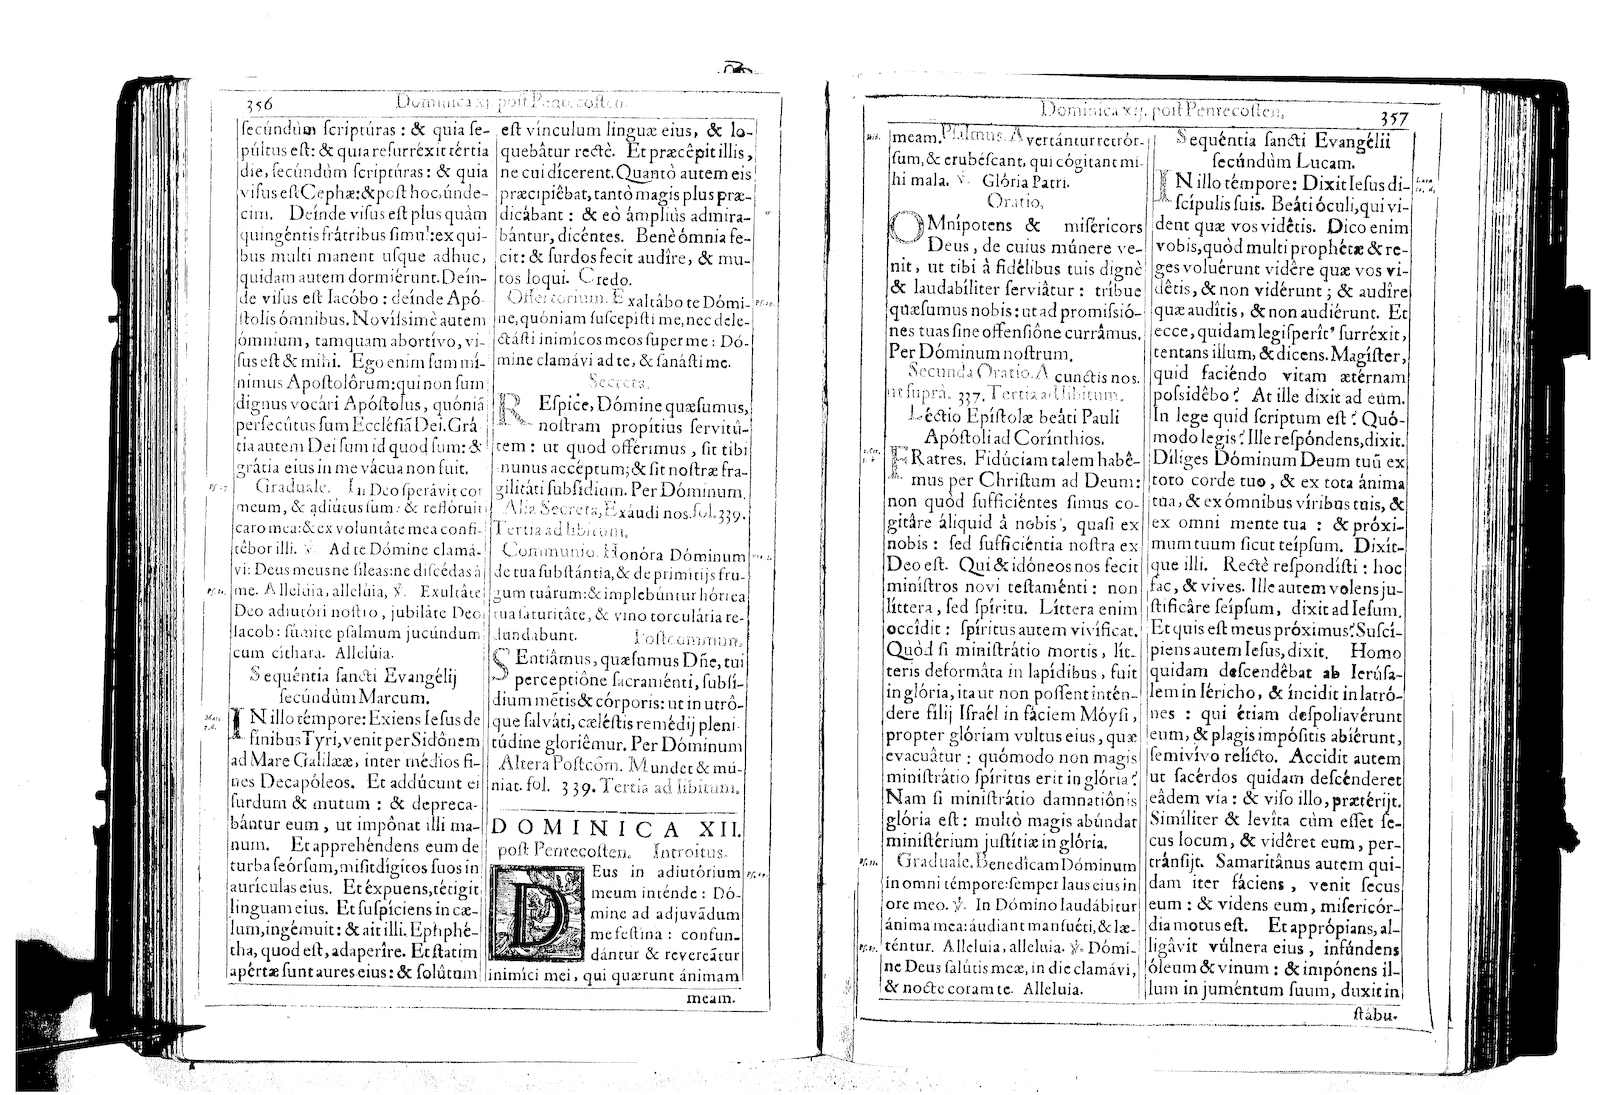 356
Dominica xj. post Pentecosten.
secúndùm scriptúras : & quia se-
púltus est: & quia resurréxit tértia
die, secúndùm scriptúras : & quia
visus est Cephæ: & post hoc, únde-
cim. Deínde visus est plus quàm
quingéntis frátribus simul: ex qui-
bus multi manent usque adhuc,
quidam autem dormiérunt. Deín-
de visus est Iacóbo : deínde Apó-
stolis ómnibus. Novíssimè autem
ómnium, tamquam abortívo, vi-
sus est & mihi. Ego enim sum mí-
nimus Apostolôrum: qui non sum
dignus vocári Apóstolus, quóniã
persecútus sum Ecclésiã Dei. Grá-
tia autem Dei sum id quod sum: &
grátia eius in me vácua non fuit.
Graduale. In Deo sperâvit cor
meum, & adiútus sum: & reflóruit
caro mea: & ex voluntáte mea confi-
têbor illi. ℣. Ad te Dómine clamá-
vi: Deus meus ne síleas: ne discédas à
me. Alleluia, alleluia, ℣. Exultâte
Deo adiutóri nostro, jubilâte Deo
Iacob: súmite psalmum jucúndum
cum cíthara. Alleluia.
Sequéntia sancti Evangélij
secúndùm Marcum.
IN illo témpore: Exiens Iesus de
fínibus Tyri, venit per Sidônem
ad Mare Galilææ, inter médios fi-
nes Decapóleos. Et addúcunt ei
surdum & mutum : & depreca-
bántur eum, ut impônat illi ma-
num. Et apprehéndens eum de
turba seórsum, misit dígitos suos in
aurículas eius. Et éxpuens, tétigit
linguam eius. Et suspíciens in cæ-
lum, ingémuit: & ait illi. Ephphé-
tha, quod est, adaperíre. Et statim
apértæ sunt aures eius: & solûtum
est vínculum linguæ eius, & lo-
quebâtur rectè. Et præcêpit illis,
ne cui dícerent. Quantò autem eis
præcipiêbat, tantò magis plus præ-
dicábant : & eò ámpliùs admira-
bántur, dicéntes. Benè ómnia fe-
cit: & surdos fecit audîre, & mu-
tos loqui. Credo.
Offertorium. Exaltâbo te Dómi-
ne, quóniam suscepísti me, nec dele-
ctásti inimícos meos super me : Dó-
mine clamávi ad te, & sanásti me.
Secreta.
REspice, Dómine quæsumus,
nostram propítius servitû-
tem : ut quod offérimus, sit tibi
munus accéptum; & sit nostræ fra-
gilitáti subsídium. Per Dóminum.
Alia Secreta, Exáudi nos. fol. 339.
Tertia ad libitum.
Communio. Honóra Dóminum
de tua substántia, & de primítijs fru-
gum tuárum: & implebúntur hórrea
tua saturitâte, & vino torculária re-
dundabunt. Postcommun.
SEntiâmus, quæsumus Dñe, tui
perceptiône sacraménti, subsí-
dium mẽtis & córporis: ut in utrô-
que salváti, cæléstis remédij pleni-
túdine gloriêmur. Per Dóminum
Altera Postcõm. Mundet & mú-
niat. fol. 339. Tertia ad libitum.
DOMINICA XII.
post Pentecosten. Introitus.
DEus in adiutórium
meum inténde : Dó-
mine ad adjuvãdum
me festína : confun-
dántur & revereãtur
inimíci mei, qui quærunt ánimam
meam.
Dominica xij. post Pentecosten.
357
meam. Psalmus. Avertántur retrór-
sum, & erubéscant, qui cógitant mi-
hi mala. ℣. Glória Patri.
Oratio.
OMnípotens & miséricors
Deus, de cuius múnere ve-
nit, ut tibi à fidélibus tuis dignè
& laudabíliter serviâtur : tríbue
quæsumus nobis: ut ad promissió-
nes tuas sine offensiône currâmus.
Per Dóminum nostrum.
Secunda Oratio. A cunctis nos.
ut suprà. 337. Tertia ad libitum.
Léctio Epístolæ beáti Pauli
Apóstoli ad Corínthios.
FRatres. Fidúciam talem habê-
mus per Christum ad Deum:
non quòd sufficiéntes simus co-
gitáre áliquid à nobis, quasi ex
nobis : sed sufficiéntia nostra ex
Deo est. Qui & idóneos nos fecit
minístros novi testaménti : non
líttera, sed spíritu. Líttera enim
occídit : spíritus autem vivíficat.
Quòd si ministrátio mortis, lít-
teris deformáta in lapídibus, fuit
in glória, ita ut non possent intén-
dere filij Israél in fáciem Móysi,
propter glóriam vultus eius, quæ
evacuâtur : quómodo non magis
ministrátio spíritus erit in glória?
Nam si ministrátio damnatiônis
glória est: multò magis abúndat
ministérium justítiæ in glória.
Graduale. Benedícam Dóminum
in omni témpore: semper laus eius in
ore meo. ℣. In Dómino laudábitur
ánima mea: áudiant mansuéti, & læ-
téntur. Alleluia, alleluia. ℣. Dómi-
ne Deus salútis meæ, in die clamávi,
& nocte coram te. Alleluia.
Sequéntia sancti Evangélii
secúndùm Lucam.
IN illo témpore: Dixit Iesus di-
scípulis suis. Beáti óculi, qui vi-
dent quæ vos vidêtis. Dico enim
vobis, quòd multi prophétæ & re-
ges voluérunt vidêre quæ vos vi-
dêtis, & non vidérunt ; & audíre
quæ audîtis, & non audiérunt. Et
ecce, quidam legisperít' surréxit,
tentans illum, & dicens. Magíster,
quid faciéndo vitam ætérnam
possidêbo? At ille dixit ad eum.
In lege quid scriptum est? Quó-
modo legis? Ille respóndens, dixit.
Díliges Dóminum Deum tuũ ex
toto corde tuo, & ex tota ánima
tua, & ex ómnibus víribus tuis, &
ex omni mente tua : & próxi-
mum tuum sicut teípsum. Dixít-
que illi. Rectè respondísti : hoc
fac, & vives. Ille autem volens ju-
stificâre seípsum, dixit ad Iesum.
Et quis est meus próximus? Suscí-
piens autem Iesus, dixit. Homo
quidam descendêbat ab Ierúsa-
lem in Iéricho, & íncidit in latró-
nes : qui étiam despoliavérunt
eum, & plagis impósitis abiérunt,
semivívo relícto. Accidit autem
ut sacérdos quidam descénderet
eâdem via : & viso illo, prætérijt.
Simíliter & levíta cùm esset se-
cus locum, & vidêret eum, per-
tránsijt. Samaritânus autem qui-
dam iter fáciens, venit secus
eum : & videns eum, misericór-
dia motus est. Et apprópians, al-
ligâvit vúlnera eius, infúndens
óleum & vinum : & impónens il-
lum in juméntum suum, duxit in
stábu-